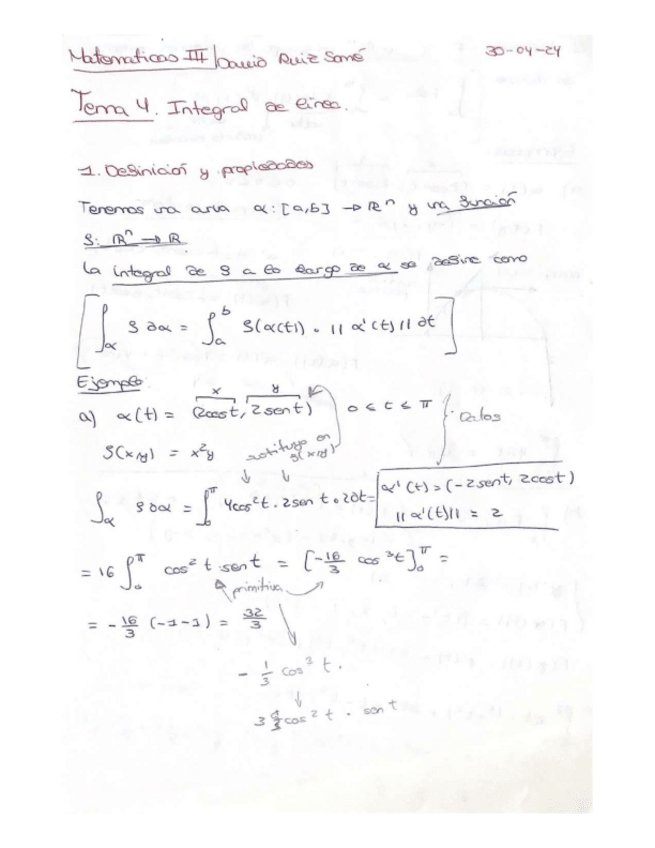 Matematicas III | Dario Ruiz 30-04-24
Tema 4. Integral de linea.
1. Definición y propiedades
Tenemos una curva α: [a,b] → ℝⁿ y una función
f: ℝⁿ → ℝ
La integral de f a lo largo de α se define como
[∫_α f dα = ∫_a^b f(α(t)) · ||α'(t)|| dt]
Ejemplo:
x y
a) α(t) = (2cost, 2sent) 0 ≤ t ≤ π Datos
f(x,y) = x²y sustituyo en f(x,y)
∫_α f dα = ∫_0^π 4cos²t · 2sent · 2dt = α'(t) = (-2sent, 2cost)
||α'(t)|| = 2
= 16 ∫_0^π cos²t · sent = [-16/3 cos³t]_0^π =
primitiva
= -16/3 (-1-1) = 32/3
- 1/3 cos³ t.
cos² t · sent